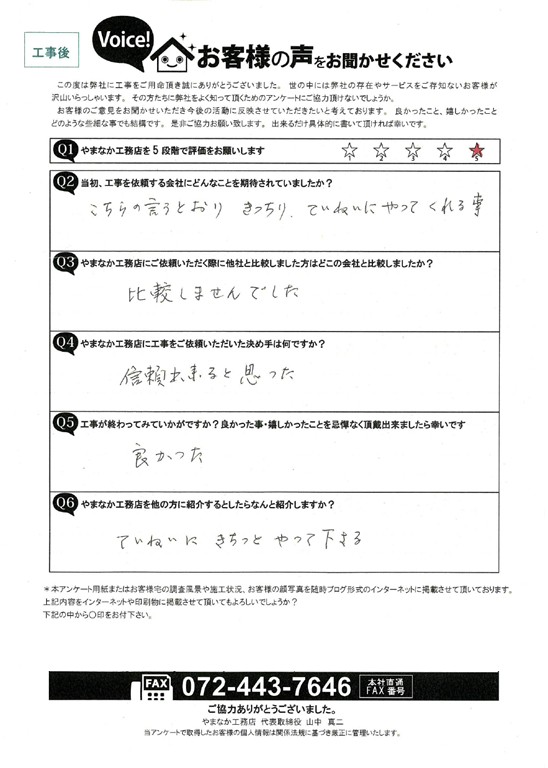 工事後
Voice!
お客様の声をお聞かせください
この度は弊社に工事をご用命頂き誠にありがとうございました。世の中には弊社の存在やサービスをご存知ないお客様が
沢山いらっしゃいます。その方たちに弊社をよく知って頂くためのアンケートにご協力頂けないでしょうか。
お客様のご意見をお聞かせいただき今後の活動に反映させていただきたいと考えております。良かったこと、嬉しかったこと
どのような些細な事でも結構です。是非ご協力お願い致します。出来るだけ具体的に書いて頂ければ幸いです。
Q1 やまなか工務店を5段階で評価をお願いします
1 2 3 4 5
Q2 当初、工事を依頼する会社にどんなことを期待されていましたか?
こちらの言うとおり きっちり、ていねいにやってくれる事
Q3 やまなか工務店にご依頼いただく際に他社と比較しました方はどこの会社と比較しましたか?
比較しませんでした
Q4 やまなか工務店に工事をご依頼いただいた決め手は何ですか?
信頼出来ると思った
Q5 工事が終わってみていかがですか?良かった事・嬉しかったことを忌憚なく頂戴出来ましたら幸いです
良かった
Q6 やまなか工務店を他の方に紹介するとしたらなんと紹介しますか?
ていねいに きちっと やって下さる
*本アンケート用紙またはお客様宅の調査風景や施工状況、お客様の顔写真を随時ブログ形式のインターネットに掲載させて頂いております。
上記内容をインターネットや印刷物に掲載させて頂いてもよろしいでしょうか?
下記の中から〇印をお付下さい。
FAX 072-443-7646 本社直通 FAX番号
ご協力ありがとうございました。
やまなか工務店 代表取締役 山中 真二
当アンケートで取得したお客様の個人情報は関係法規に基づき厳正に管理いたします。